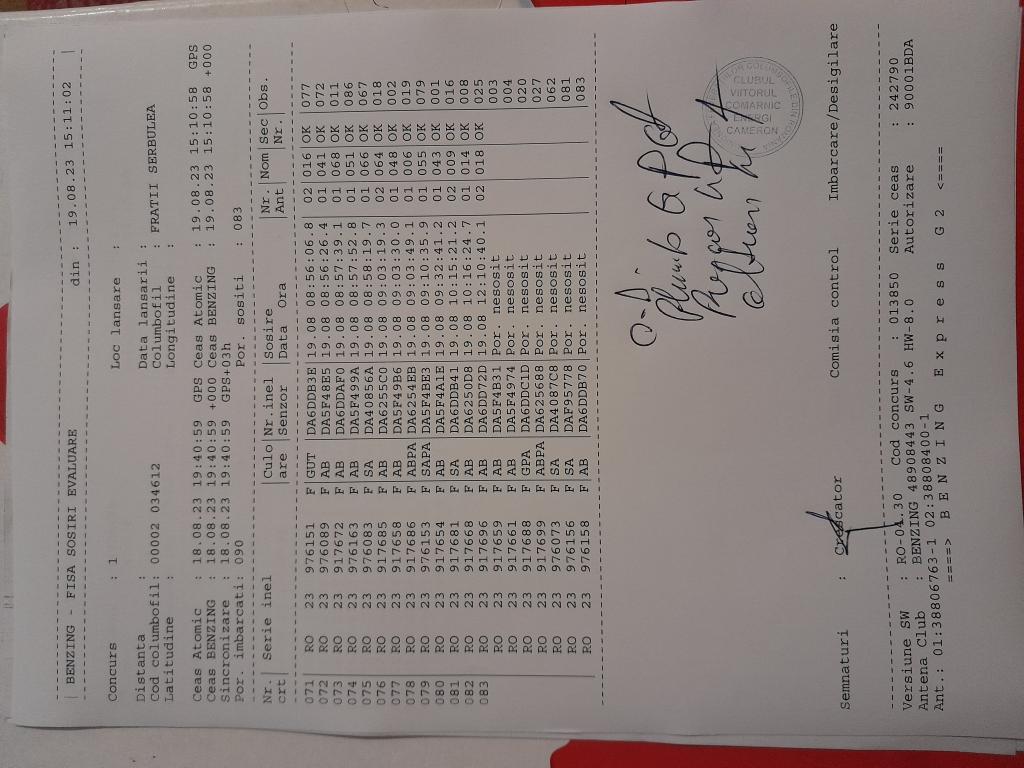 | BENZING - FISA SOSIRI EVALUARE din : 19.08.23 15:11:02 |
Concurs : 1 Loc lansare :
Distanta : Data lansarii :
Cod columbofil: 00002 034612 Columbofil : FRATII SERBULEA
Latitudine : Longitudine :
Ceas Atomic : 18.08.23 19:40:59 GPS Ceas Atomic : 19.08.23 15:10:58 GPS
Ceas BENZING : 18.08.23 19:40:59 +000 Ceas BENZING : 19.08.23 15:10:58 +000
Sincronizare : 18.08.23 19:40:59 GPS+03h
Por. imbarcati: 090 Por. sositi : 083
Nr. | Serie inel | Culo | Nr.inel | Sosire | Nr. | Nom | Sec | Obs.
crt | | are | Senzor | Data Ora | Ant | | Nr. |
071 RO 23 976151 F GUT DA6DDB3E 19.08 08:56:06.8 02 016 OK 077
072 RO 23 976089 F AB DA5F48E5 19.08 08:56:26.4 01 041 OK 072
073 RO 23 917672 F AB DA6DDAF0 19.08 08:57:39.1 01 068 OK 011
074 RO 23 976163 F AB DA5F499A 19.08 08:57:52.8 01 051 OK 086
075 RO 23 976083 F SA DA40856A 19.08 08:58:19.7 01 066 OK 067
076 RO 23 917685 F AB DA6255C0 19.08 09:03:19.3 02 064 OK 018
077 RO 23 917658 F AB DA5F49B6 19.08 09:03:30.0 01 048 OK 002
078 RO 23 917686 F ABPA DA6254EB 19.08 09:03:49.1 01 006 OK 019
079 RO 23 976153 F SAPA DA5F4BE3 19.08 09:10:35.9 01 055 OK 079
080 RO 23 917654 F AB DA5F4A1E 19.08 09:32:41.2 01 043 OK 001
081 RO 23 917681 F SA DA6DDB41 19.08 10:15:21.2 02 009 OK 016
082 RO 23 917668 F AB DA6250D8 19.08 10:16:24.7 01 014 OK 008
083 RO 23 917696 F AB DA6DD72D 19.08 12:10:40.1 02 018 OK 025
RO 23 917659 F AB DA5F4B31 Por. nesosit 003
RO 23 917661 F AB DA5F4974 Por. nesosit 004
RO 23 917688 F GPA DA6DDC1D Por. nesosit 020
RO 23 917699 F ABPA DA625688 Por. nesosit 027
RO 23 976073 F SA DA4087C8 Por. nesosit 062
RO 23 976156 F SA DAF95778 Por. nesosit 081
RO 23 976158 F AB DA6DDB70 Por. nesosit 083
CLUBUL
VIITORUL
COMARNIC
ENERGI
CAMERON
Semnaturi : Crescator Comisia control Imbarcare/Desigilare
Versiune SW : RO-04.30 Cod concurs : 013850 Serie ceas : 242790
Antena Club : BENZING 48908443 SW-4.6 HW-8.0 Autorizare : 90001BDA
Ant.: 01:38806763-1 02:38808400-1
====> B E N Z I N G E x p r e s s G 2 <====